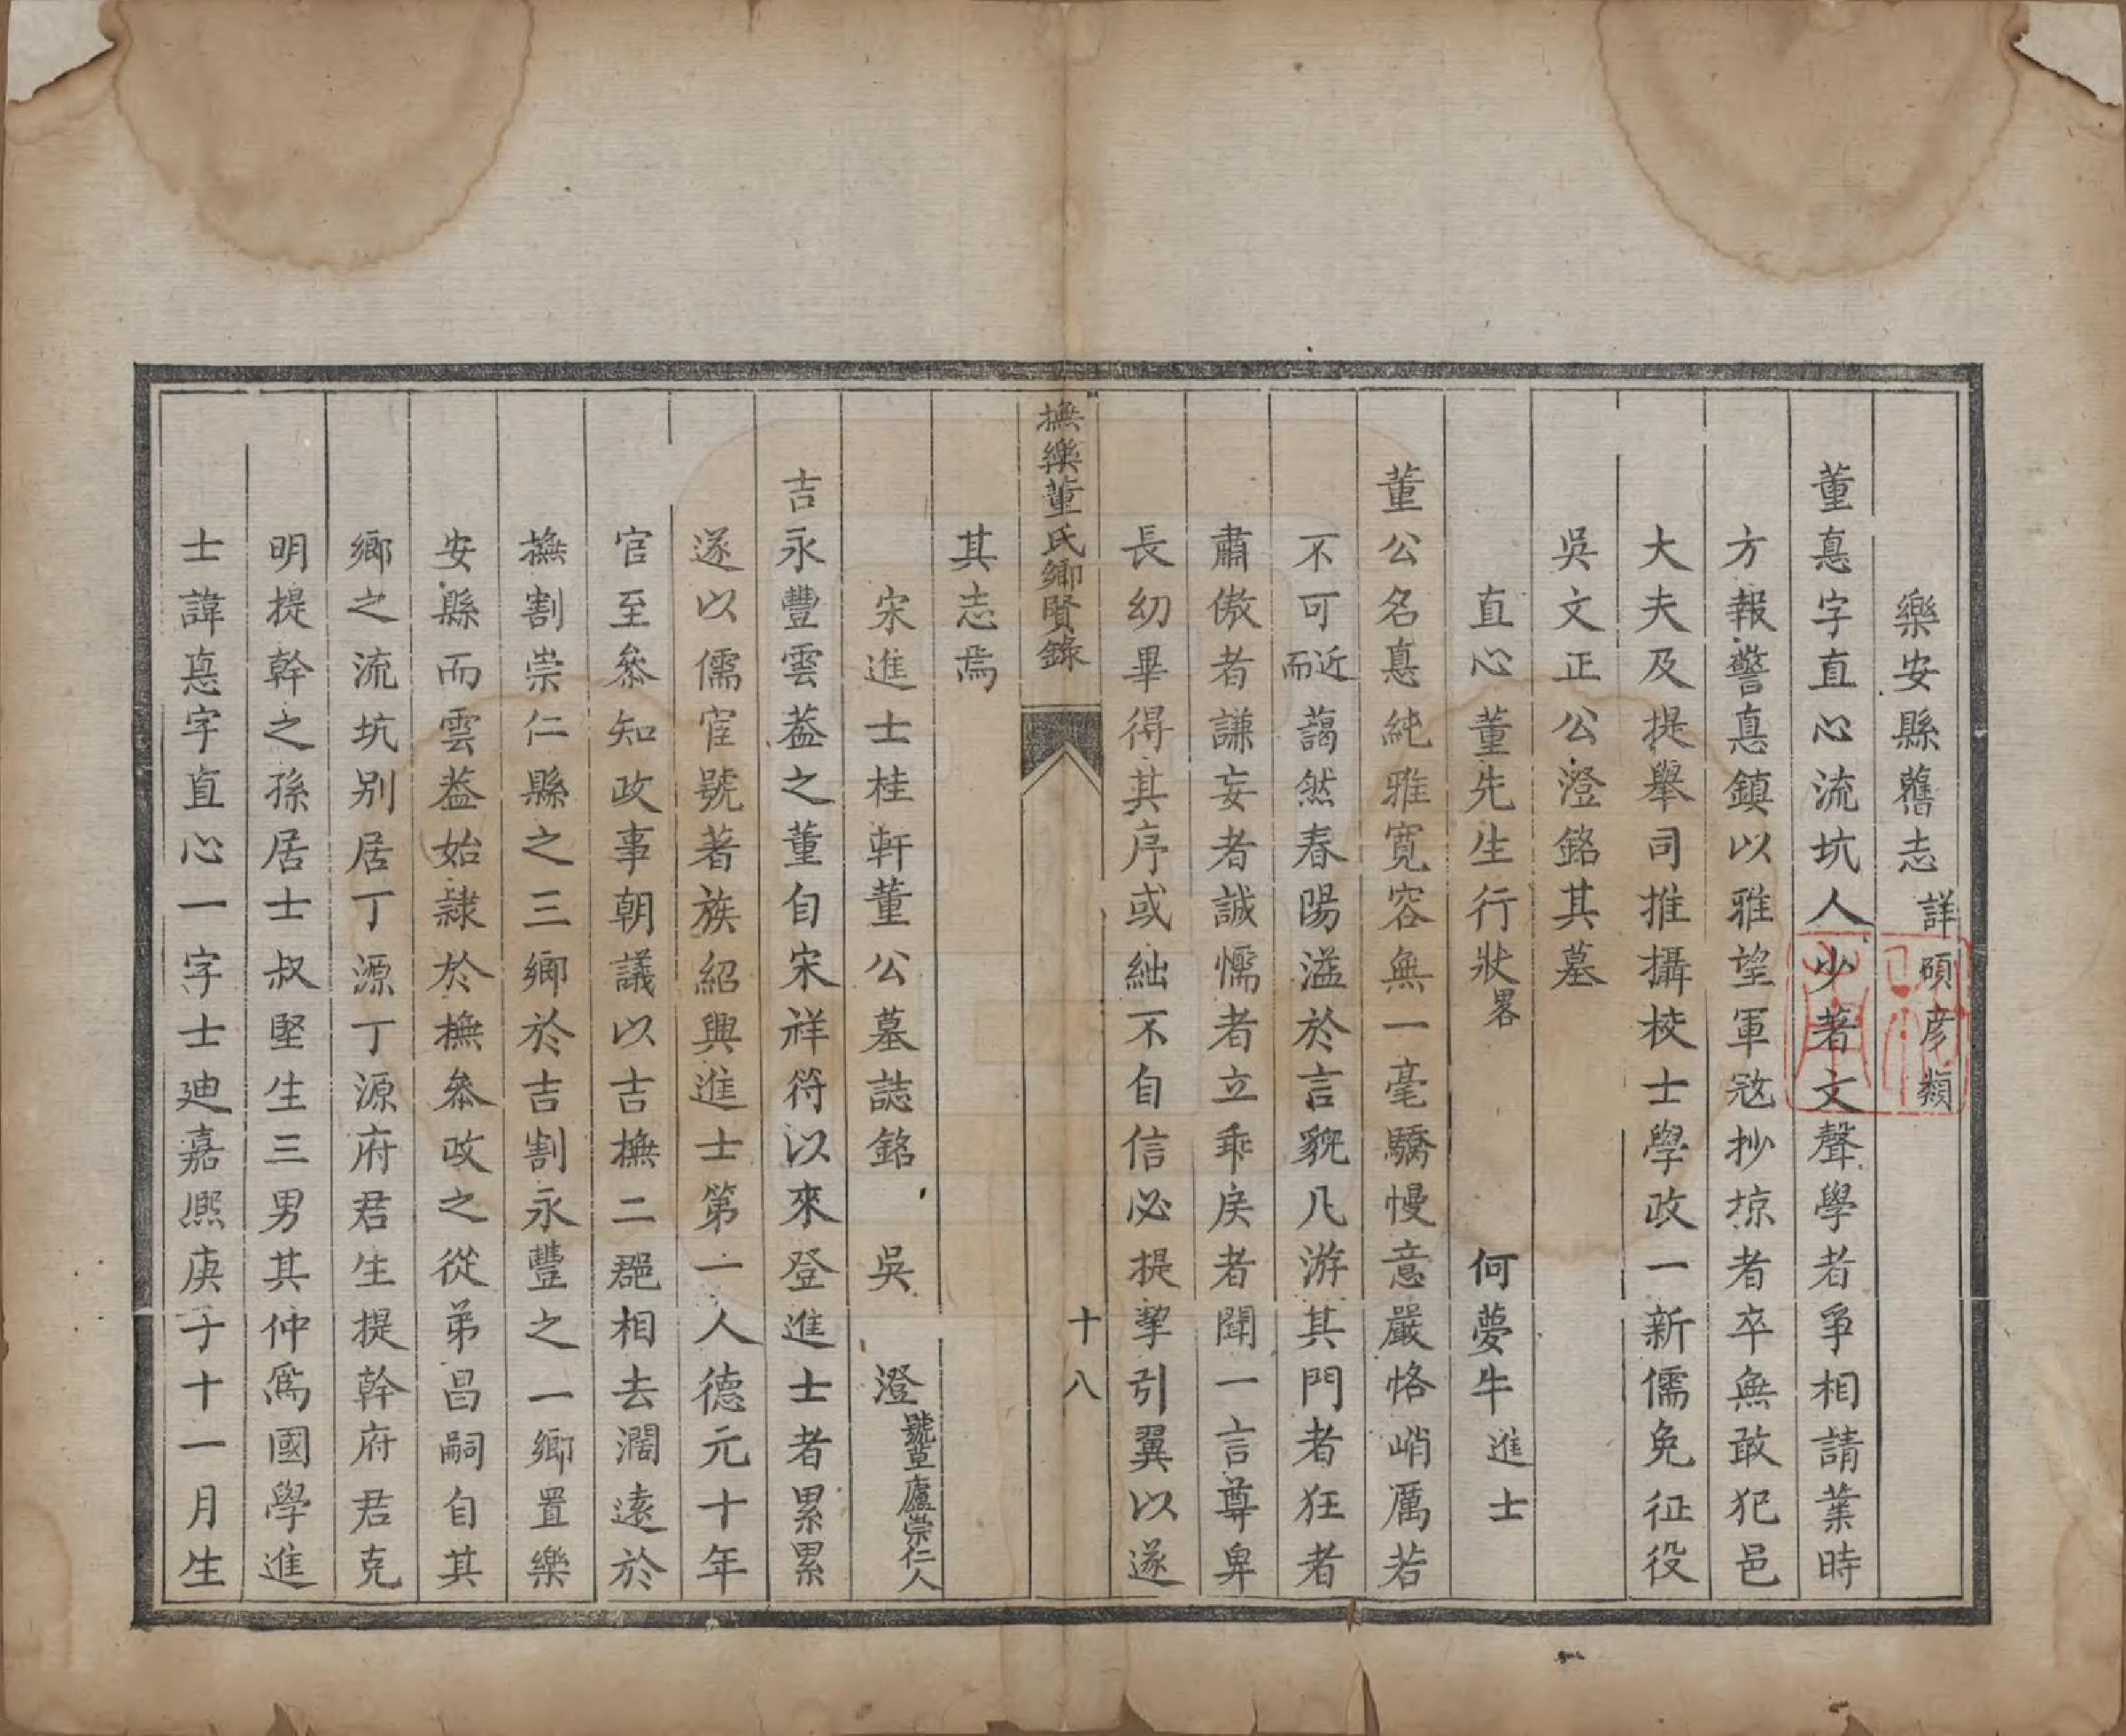 樂安縣舊志詳碩彦類
董惪字直心流坑人少著文聲學者爭相請業時
方報警惪鎮以雅望軍𡨥抄掠者卒無敢犯邑
大夫及提舉司推攝校士學政一新儒免征役
吳文正公澄銘其墓
直心董先生行狀畧　何夢牛進士
董公名惪純雅寛容無一毫驕慢意嚴恪峭厲若
不可而近藹然春陽溢於言貌凡游其門者狂者
肅傲者謙妄者誠懦者立乖戾者聞一言尊卑
長幼畢得其序或絀不自信必提挈引翼以遂
其志焉
撫樂董氏鄉賢錄　十八
宋進士桂軒董公墓誌銘　吳　澄號草廬崇仁人
吉永豐雲葢之董自宋祥符以來登進士者累累
遂以儒宦號著族紹興進士第一人德元十年
官至叅知政事朝議以吉撫二郡相去濶遠於
撫割崇仁縣之三鄉於吉割永豐之一鄉置樂
安縣而雲葢始隷於撫叅政之從弟昌嗣自其
鄉之流坑别居丁源丁源府君生提幹府君克
明提幹之孫居士叔堅生三男其仲爲國學進
士諱惪字直心一字士廸嘉熈庚子十一月生